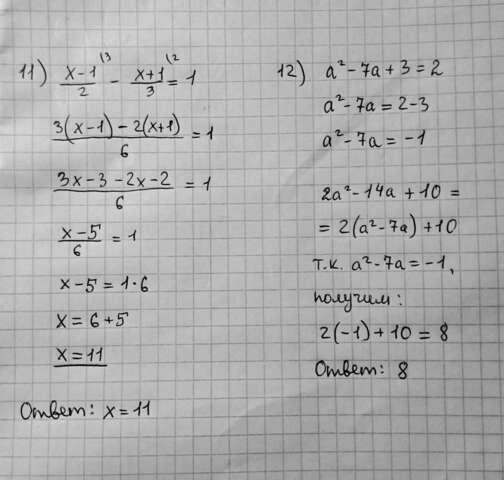 11) (x-1)/2 ⁽³ - (x+1)/3 ⁽² = 1
(3(x-1) - 2(x+1))/6 = 1
(3x-3-2x-2)/6 = 1
(x-5)/6 = 1
x-5 = 1·6
x = 6+5
x = 11
Ответ: x = 11
12) a² - 7a + 3 = 2
a² - 7a = 2-3
a² - 7a = -1
2a² - 14a + 10 =
= 2(a² - 7a) + 10
т.к. a² - 7a = -1,
получим:
2(-1) + 10 = 8
Ответ: 8